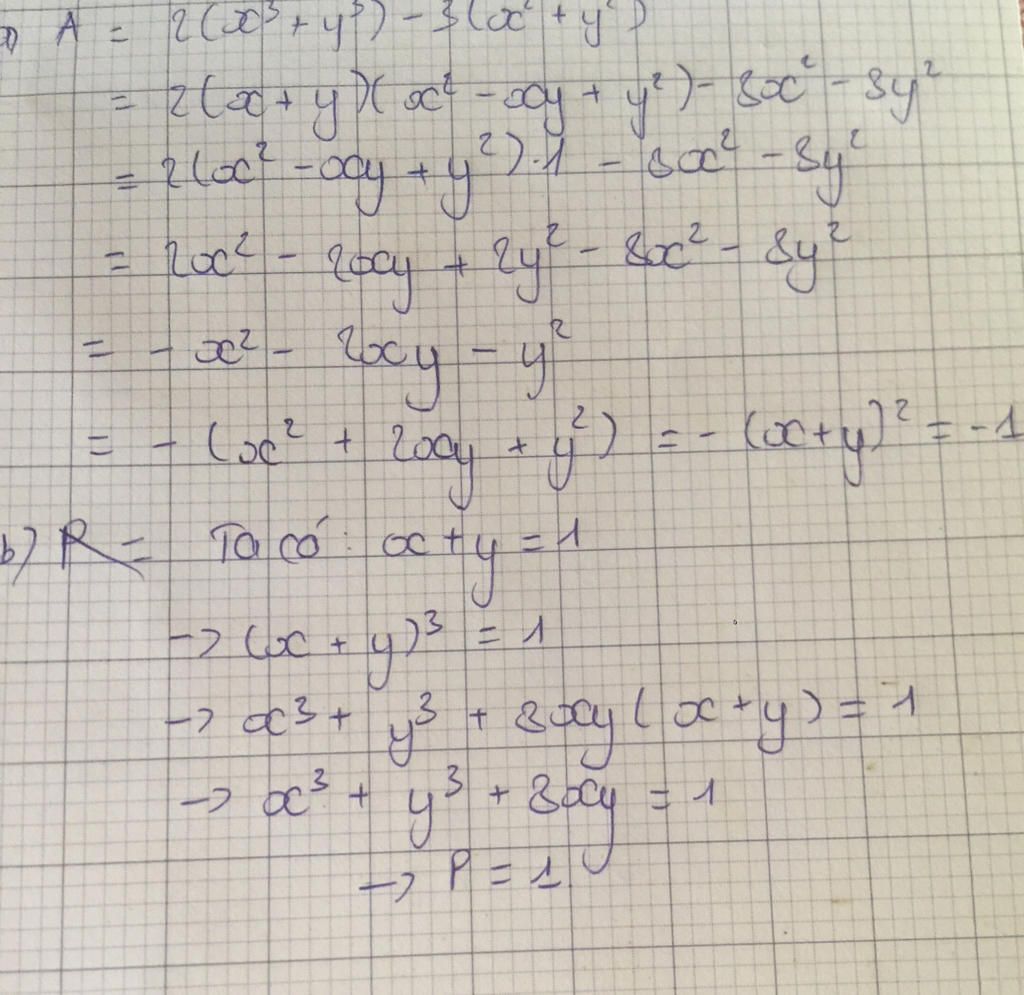 a) A = 2(x³ + y³) - 3(x² + y²)
= 2(x + y)(x² - xy + y²) - 3x² - 3y²
= 2(x² - xy + y²).1 - 3x² - 3y²
= 2x² - 2xy + 2y² - 3x² - 3y²
= - x² - 2xy - y²
= - (x² + 2xy + y²) = - (x+y)² = -1
b) P = Ta có: x + y = 1
-> (x + y)³ = 1
-> x³ + y³ + 3xy(x + y) = 1
-> x³ + y³ + 3xy = 1
-> P = 1